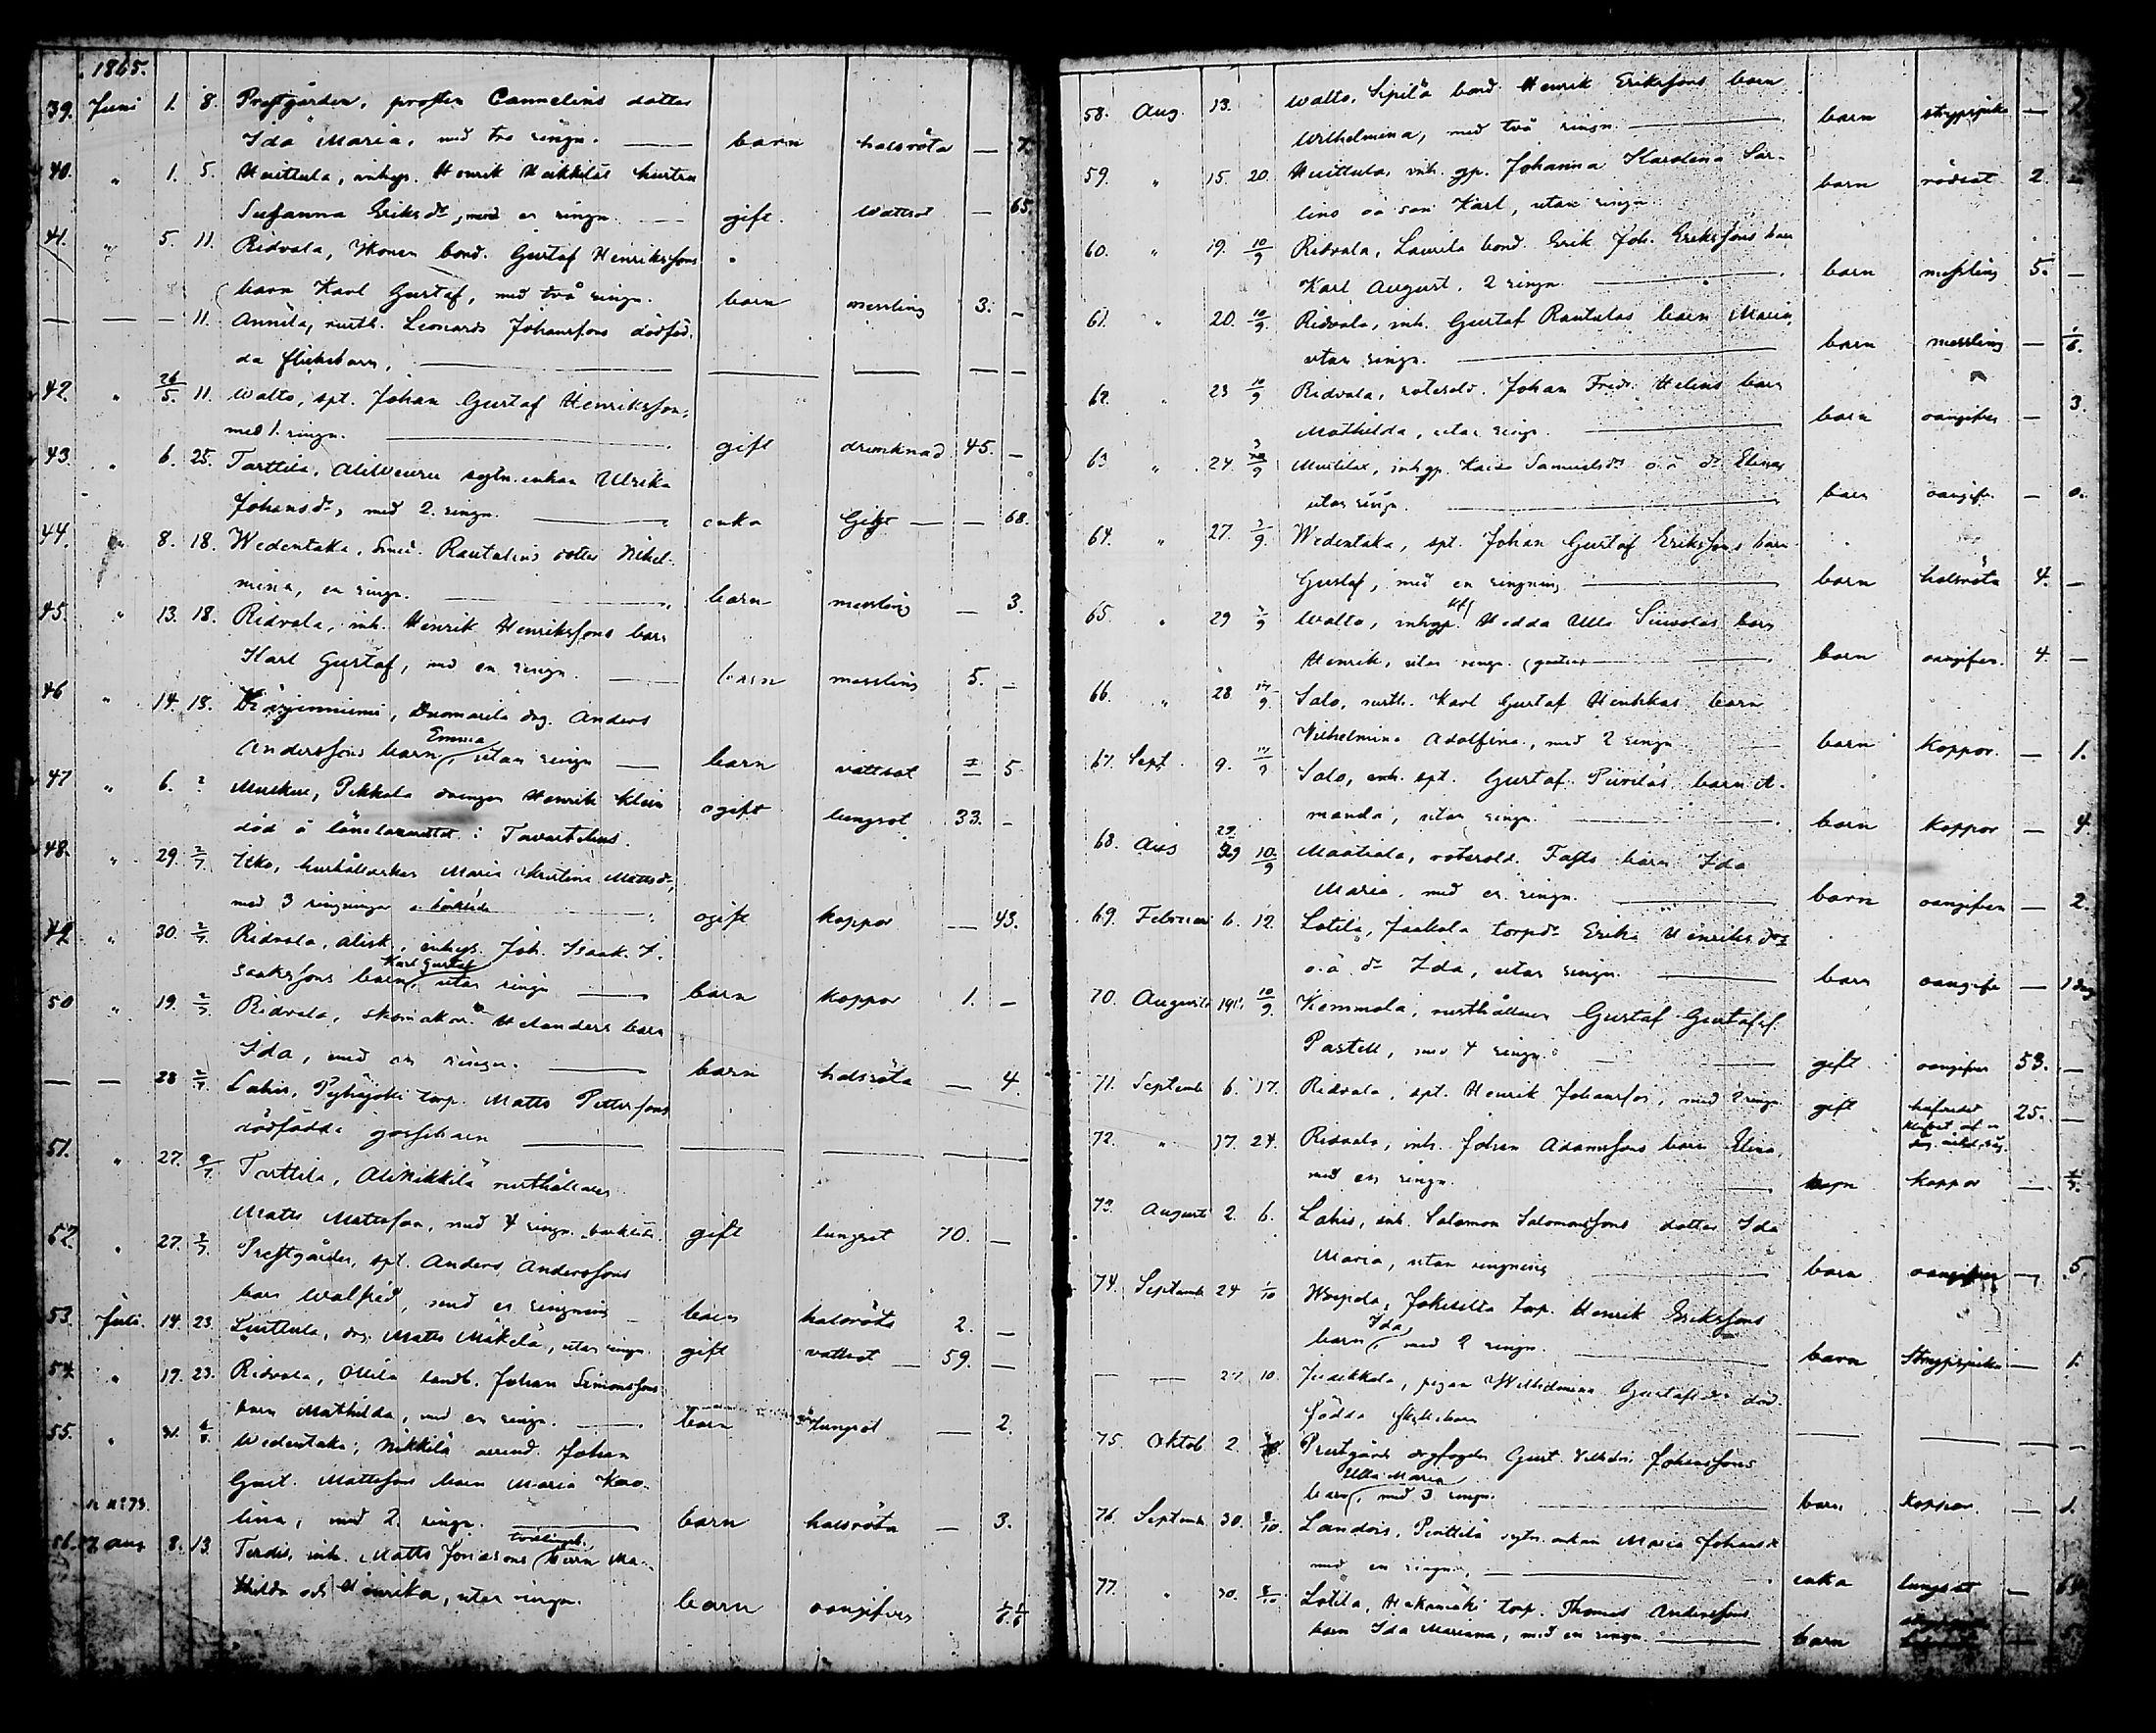 1865.
39. Juni 1. 8. Prestgården, prosten Cannelins dotter
Ida Maria, med tre ringn. barn halsröta — 7.
40. " 1. 5. Huittula, inhys. Henrik Heikkiläs hustru
Susanna Eriksdr, med en ringn. gift. wattsot — 65
41. " 5. 11. Ridvala, Ikonen bond. Gustaf Henrikssons
barn Karl Gustaf, med två ringn. barn messling 3. —
— — — 11. Annila, rusth. Leonard Johanssons dödföd.
da flickebarn.
42. " 26/5. 11. Walto, spt. Johan Gustaf Henriksson,
med 1. ringn. gift drunknad 45. —
43. " 6. 25. Tarttila, sytn. enkan Ulrika
Johansdr, med 2. ringn. enka — — 68.
44. 8. 18. Wedentaka, Smed. Rautelins dotter Vilhel-
mina, en ringn. barn messling — 3.
45. " 13. 18. Ridvala, inh. Henrik Henrikssons barn
Karl Gustaf, med en ringn. barn messling 5. —
46 " 14. 18. Anders
Anderssons barn Emma utan ringn barn vattsot 5
47 " 6. ? Pekkala drengen Henrik
död å länelazarettet i Tavastehus. ogift lungsot 33. —
48. " 29. 2/7. Uko, hushållerskan Maria Kristina Mattsdr,
med 3 ringningar ogift koppor — 43.
49. " 30. 2/7. Ridvala, inhys. Joh. Isaak. I-
saakssons barn Karl Gustaf utan ringn barn koppor 1. —
50 " 19. 2/7. Ridvala, skomakar Helanders barn
Ida, med en ringn. barn halsröta — 4.
— — 28 2/7. Lahis, Pyhäjoki torp. Matts Petterssons
dödfödda gossebarn
51. " 27. 9/7. Tarttila, AliNikkilä rusthållaren
Matts Mattsson, med 4 ringn. gift lungsot 70. —
52. " 27. 9/7. Prestgården, spt. Anders Anderssons
barn Walfrid, med en ringning barn halsröta 2. —
53. Juli. 14. 23. Liuttula, drg. Matts Mäkelä, utan ringn. gift vattsot 59. —
54. " 19. 23. Ridvala, Ollila landb. Johan Simonssons
barn Mathilda, med en ringn. barn lungsot — 2.
55. " 31. Wedentaka, Nikkilä arrend. Johan
Gust. Mattssons barn Maria Karo-
N:o 73.
lina, med 2. ringn. barn halsröta — 3.
56. 57. Aug 8. 13. Terdis, inh. Matts Jonassons tvillingsb. barn Ma-
thilda och Henrika, utan ringn. barn oangifven
58. Aug. 13. Walto, Sipilä bond. Henrik Erikssons barn
Wilhelmina, med två ringn. barn strypsjuka — 7.
59. " 15. 20. Huittula, inh. qp. Johanna Karolina Sar-
lins oä son Karl, utan ringn. barn rödsot 2.
60. " 19. 10/9 Ridvala, Laurila bond. Erik Joh. Erikssons barn
Karl August. 2 ringn. barn messling 5. —
61. " 20. 10/9. Ridvala, inh. Gustaf Rautalas barn Maria,
utan ringn. barn messling — 1/6.
62. " 23 10/9 Ridvala, rotesold. Johan Fredr. Helins barn
Mathilda, utan ringn. barn oangifven — 3.
63 " 24. inhqp. Kaisa Samuelsdrs o.ä dr
utan ringn. barn oangifv. — 0.
64. " 27. 3/9. Wedentaka, spt. Johan Gustaf Erikssons barn
Gustaf, med en ringning barn halsröta 4. —
65. " 29 3/9 Walto, inhqp. Hedda Ulla barn
Henrik, utan ringn. barn oangifven. 4. —
66. " 28 17/9. Salo, rusth. Karl Gustaf barn
Vilhelmina Adolfina, med 2 ringn barn Koppor. — 1.
67. Sept. 9. 17/9 Salo, inh. spt. Gustaf barn A-
manda, utan ringn. barn Koppor — 4.
68. Aug 29 10/9 rotesold. Fasts barn Ida
Maria, med en ringn. barn oangifven — 2.
69. Februari 6. 12. Lotila, Jaakola torpdr. Erika Henriksdrs
o.ä. dr Ida, utan ringn. barn oangifv — 1 dag
70. Augusti 10/9. Kemmola, rusthållaren Gustaf Gustafsf.
Pastell, med 4 ringn. gift oangifven 53. —
71. Septemb 6. 17. Ridvala, spt. Henrik Johansson, med 2 ringn. gift 25. —
72. " 17. 24. Ridvala, inh. Johan Adamssons barn Elina,
med en ringn. barn koppor —
73. Augusti 2. 6. Lahis, inh. Salomon Salomonssons dotter Ida
Maria, utan ringning barn oangifven — 5.
74. Septemb 24 1/10 Jokisilta torp. Henrik Erikssons
barn Ida, med 2 ringn. barn Strypsjuka — 1.
— — 27. 10. Judikkala, pigan Wilhelmina Gustafsdrs död-
födda flickebarn
75. Oktob. 2. Prestgårds drgfogden Gust. Vilhelm Johanssons
barn Ulla Maria, med 3 ringn. barn Koppor — 1.
76. Septemb. 30. 8/10. Landois, Perttilä sytn. enkan Maria Johansdr
med en ringn. enka lungsot —
77. " 30. 8/10. Lotila, Hakamäki torp. Thomas Anderssons
barn Ida Mariana, med en ringn. barn